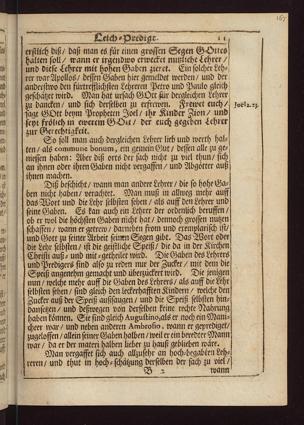 167
Leich-Predigt. 11
erstlich diß / daß man es für einen grossen Segen GOttes
halten soll / wann er irgendwo erwecket nützliche Lehrer /
und diese Lehrer mit hohen Gaben zieret. Ein solcher Leh-
rer war Apollos / dessen Gaben hier gemeldet werden / und der
anderstwo den fürtrefflichsten Lehrern Petro und Paulo gleich
geschätzet wird. Man hat ursach GOtt für dergleichen Lehrer
zu dancken / und sich derselben zu erfrewen. Frewet euch /
sagt GOtt beym Propheten Joel / ihr Kinder Zion / und
seyt frölich in ewerem GOtt / der euch gegeben Lehrer
zur Gerechtigkeit.
Joel 2. 23.
So soll man auch dergleichen Lehrer lieb und werth hal-
ten / als commune bonum, ein gemein Gut / dessen alle zu ge-
niessen haben: Aber diß orts der sach nicht zu viel thun / sich
an ihnen oder ihren Gaben nicht vergaffen / und Abgötter auß
ihnen machen.
Diß beschicht / wann man andere Lehrer / die so hohe Ga-
ben nicht haben / verachtet. Man muß in allweg mehr auff
das Wort und die Lehr selbsten sehen / als auff den Lehrer und
seine Gaben. Es kan auch ein Lehrer der ordenlich beruffen /
ob er wol die höchsten Gaben nicht hat / dennoch grossen nutzen
schaffen / wann er getrew / darneben from und exemplarisch ist /
und Gott zu seiner Arbeit seinen Segen gibt. Das Wort oder
die Lehr selbsten / ist die geistliche Speiß / die da in der Kirchen
Christi auß / und mit-getheilet wird. Die Gaben des Lehrers
und Predigers sind also zu reden nur der Zucker / mit dem die
Speiß angenehm gemacht und überzückert wird. Die jenigen
nun / welche mehr auff die Gaben des Lehrers / als auff die Lehr
selbsten sehen / sind gleich den leckerhafften Kindern / welche den
Zucker auß der Speiß aussaugen / und die Speiß selbsten hin-
dansetzen / und deßwegen von derselben keine rechte Nahrung
haben können. Sie sind gleich Augustino, als er noch ein Mani-
cheer war / und neben anderen Ambrosio, wann er geprediget /
zugeloffen / allein seiner Gaben halben / weil er ein beredter Mann
war / da er der materi halben lieber zu hauß geblieben wäre.
Man vergaffet sich auch allzusehr an hoch-begabten Leh-
reren / und thut in hoch-schätzung derselben der sach zu viel /
B 2 wann